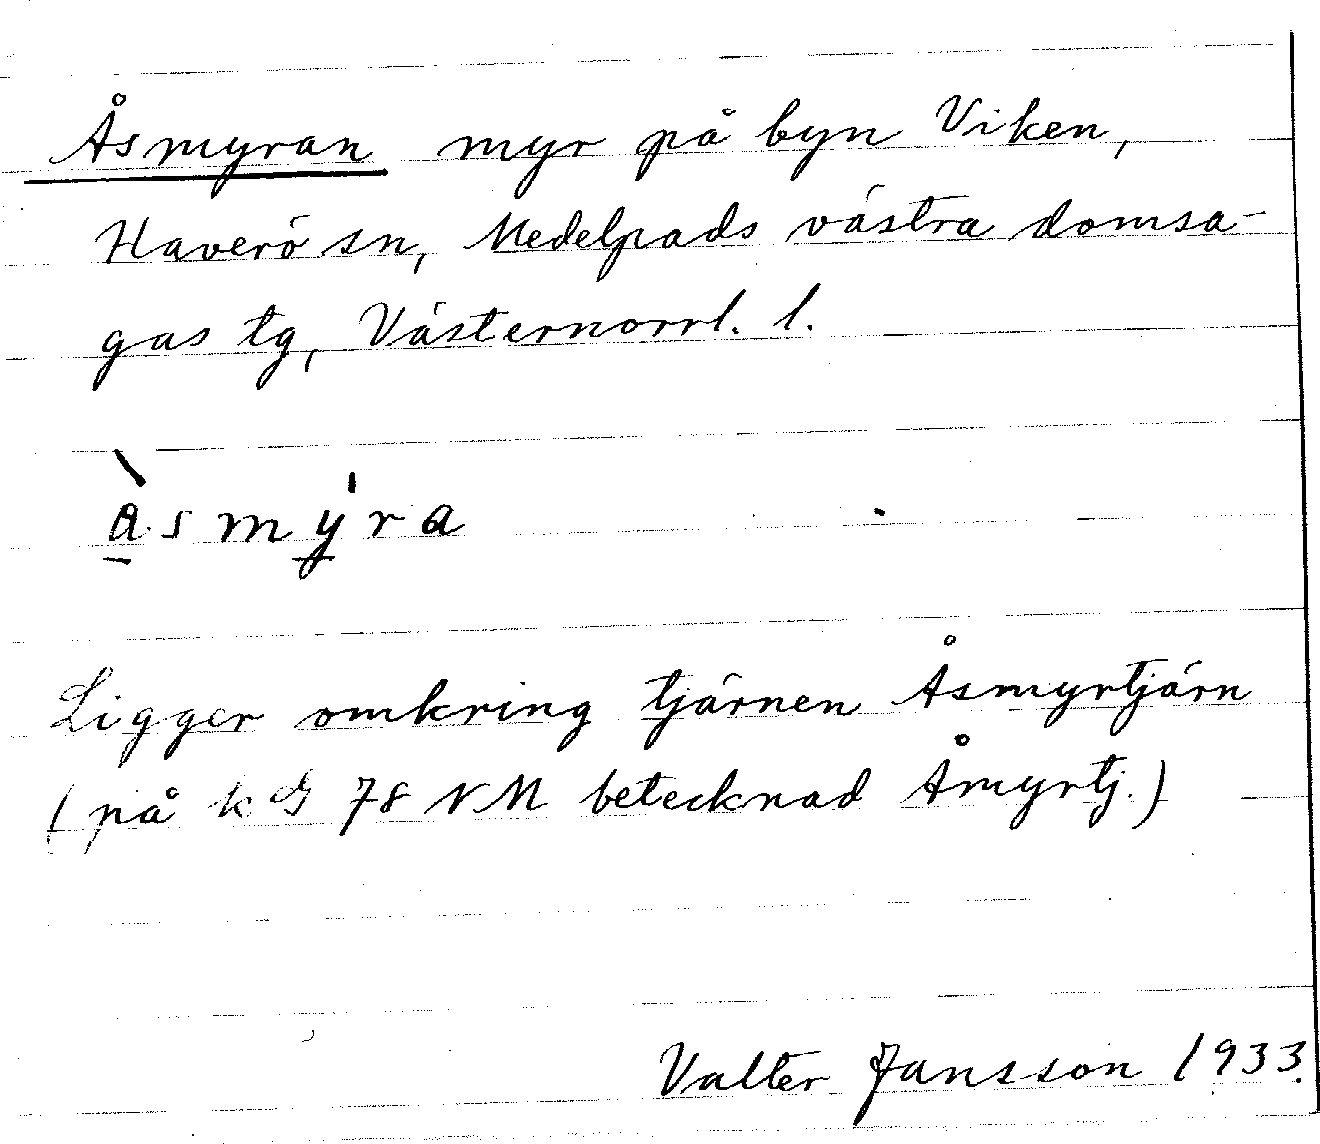 Åsmyran myr på byn Viken,
Haverö sn, Medelpads västra domsa-
gas tg, Västernorrl. l.
àsmy̍ra
Ligger omkring tjärnen Åsmyrtjärn
(på 78 NM betecknad Åmyrtj.)
Valter Jansson 1933.